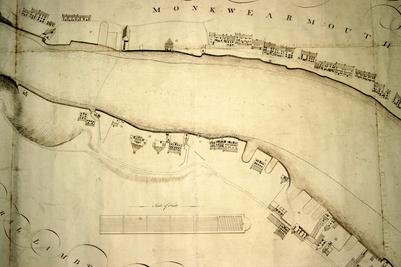 MONKWEARMOUTH
Scale of
RAL LAMBT